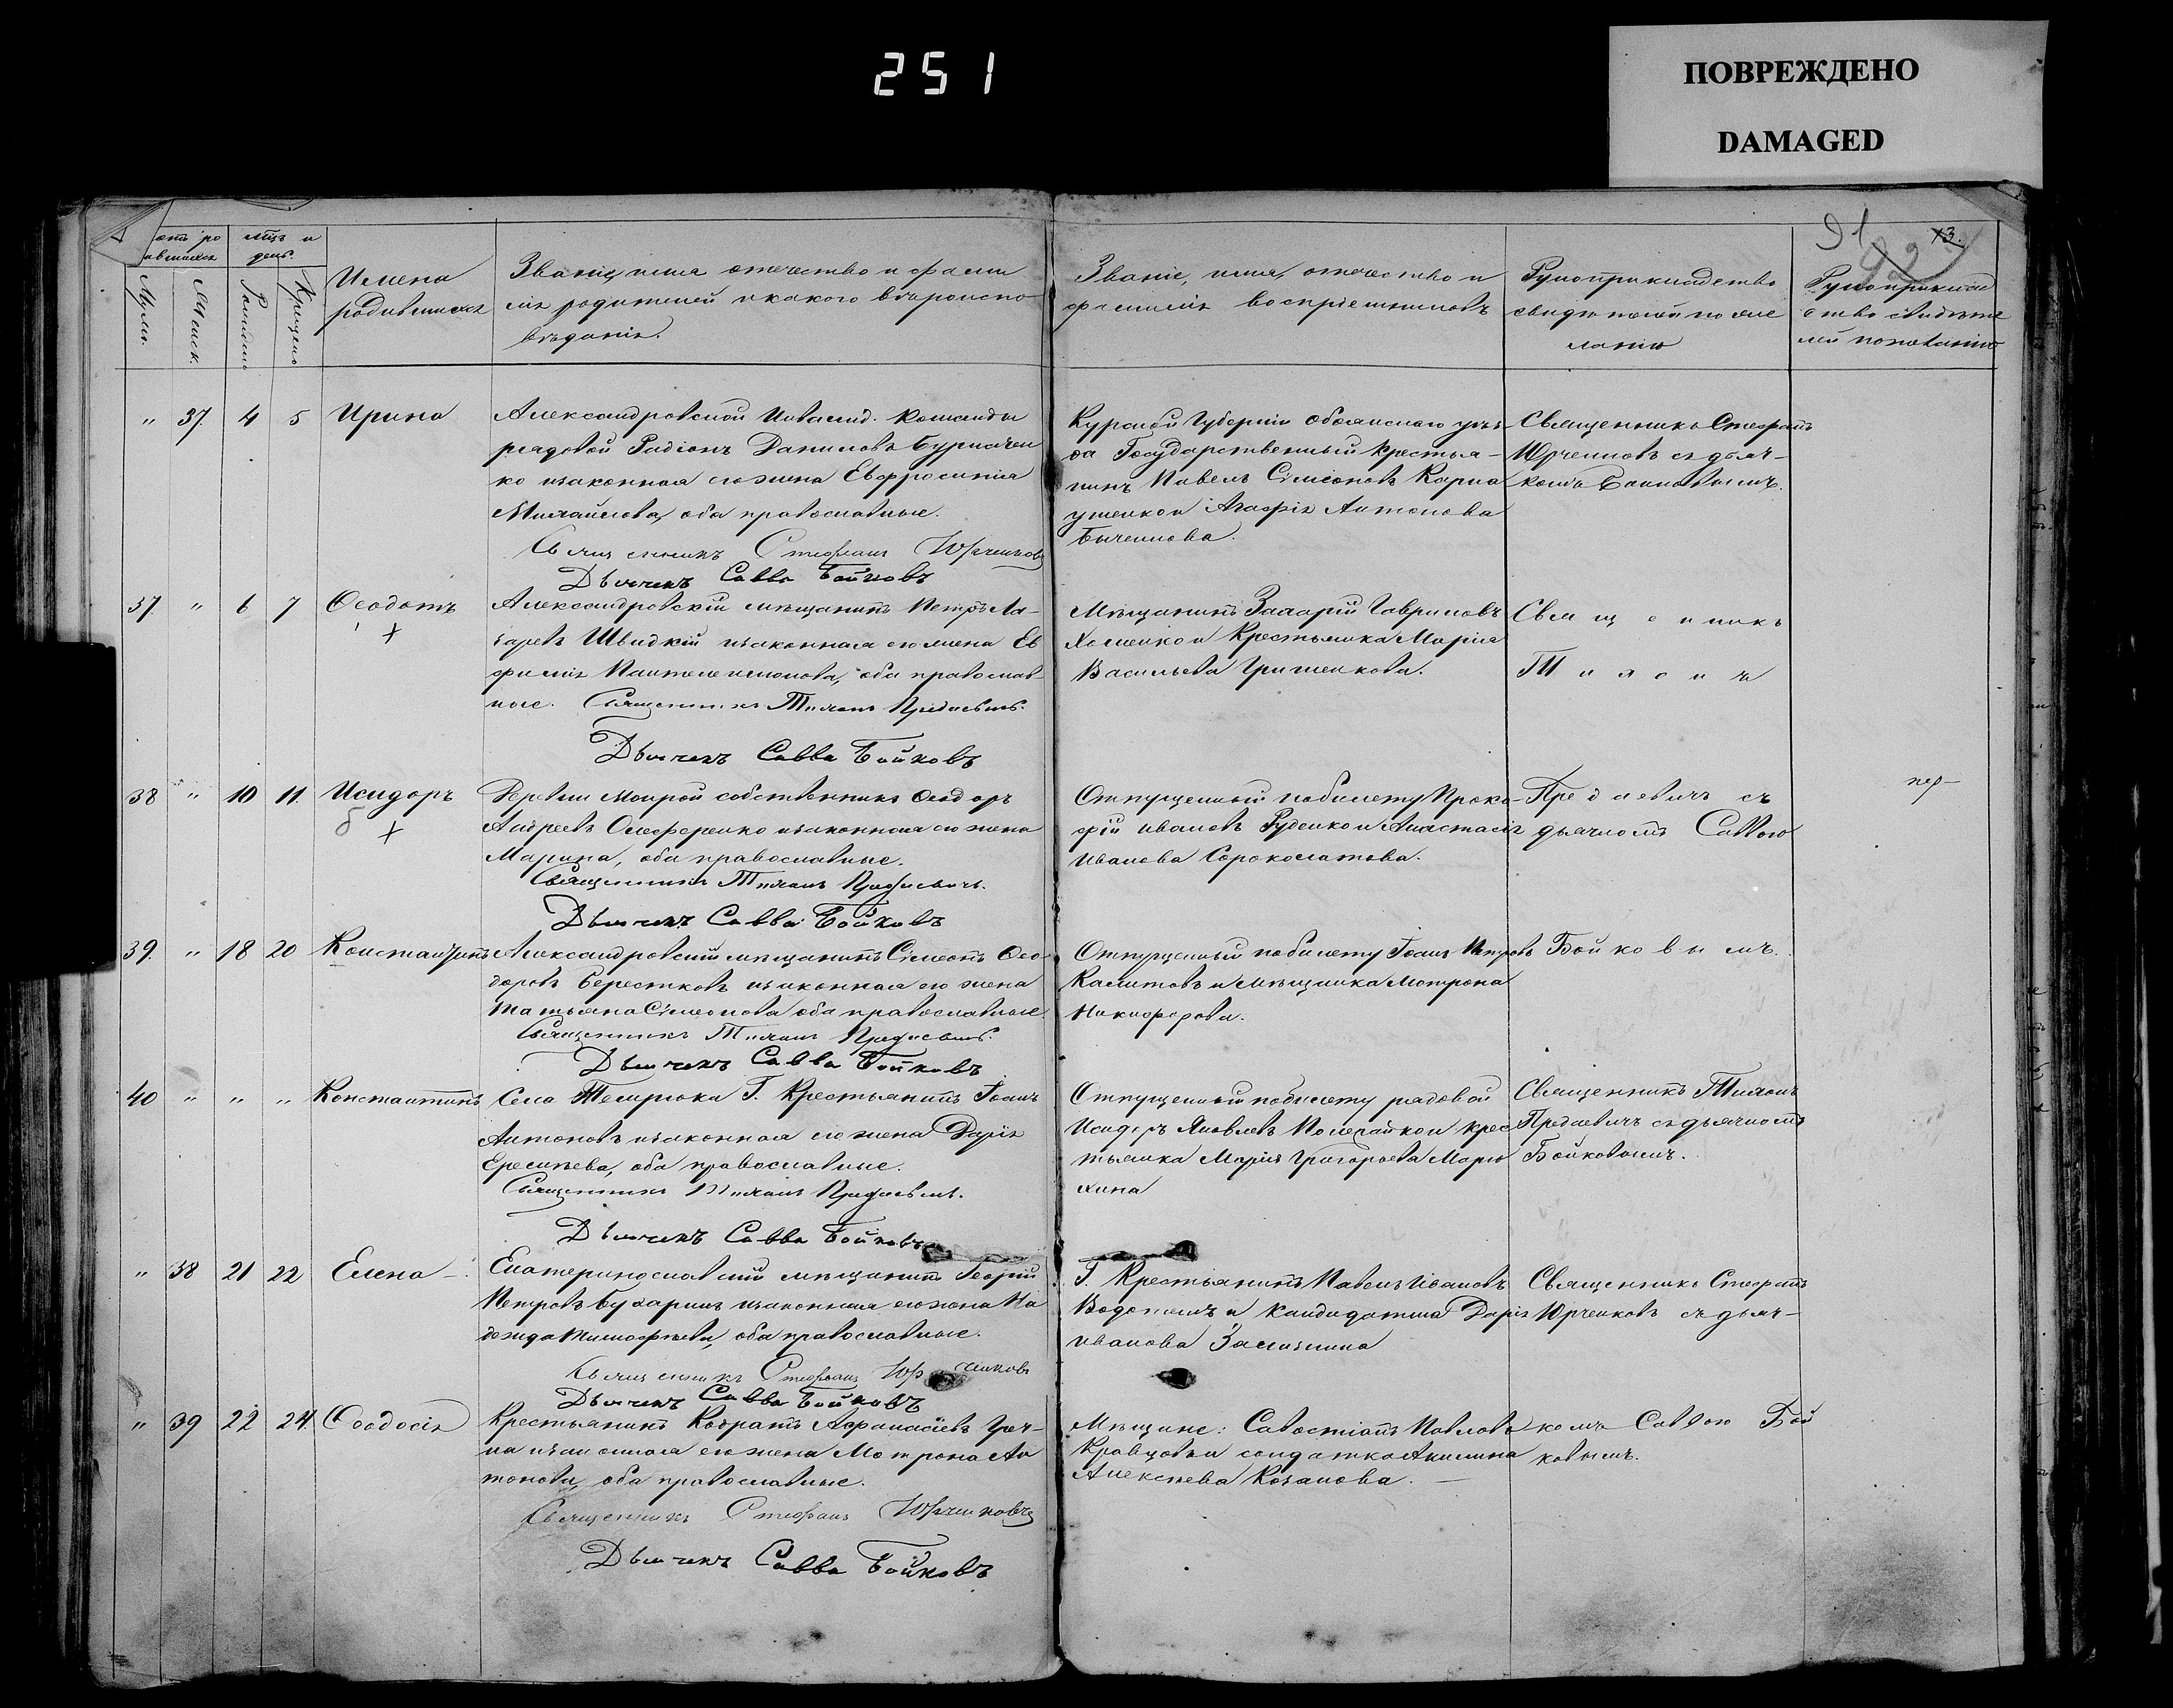 251
ПОВРЕЖДЕНО
DAMAGED
91
13.
Мѣц и
день.
Муж.
Женск.
Рожденія
Крещенія
Имена
родившихся
Званіе, имя отечество и фами
лія родителей и какого вѣроиспо
вѣданія.
Званіе, имя, отечество и
фамилія воспріемниковъ
Рукоприкладство
свидѣтелей по же
ланію
Рукоприклад
ство свидѣте
лей по желанію
" 37. 4 5 Ирина
Александровской Инвалид. команды
рядовой Радіонъ Даниловъ Бурначен
ко и законная его жена Евфросинія
Михайлова, оба православные.
Священникъ Стефанъ Юрченковъ
Дьячекъ Савва Бойковъ
Курской Губерніи Обоянскаго уѣз
да Государственный крестья-
нинъ Павелъ Сімеоновъ Карна
ушенко и Агафія Антонова
Бычепнова.
Священникъ Стефанъ
Юрченковъ съ дьяч-
комъ Бойковымъ.
37. " 6 7 Ѳеодотъ
Александровскій мѣщанинъ Петръ Ла-
заревъ Швидкій и законная его жена Ев
фимія Пантелеимонова, оба православ
ные. Священникъ Тихонъ Предаевичъ.
Дьячекъ Савва Бойковъ
Мѣщанинъ Захарій Гавриловъ
Хоменко и Крестьянка Марія
Васильева Гришенкова.
Священникъ
Тихонъ
38 " 10 11. Исидоръ
Деревни Мокрой собственникъ Ѳеодоръ
Андреевъ Олеференко и законная его жена
Марина, оба православные.
Священникъ Тихонъ Предаевичъ.
Дьячекъ Савва Бойковъ
Отпущенный по билету Проко-
фій Ивановъ Руденко и Анастасія
Иванова Сорокопатова.
Предаевичъ съ
дьячкомъ Саввою
39. " 18 20 Константинъ
Александровскій мѣщанинъ Сімеонъ Ѳео
доровъ Берестковъ и законная его жена
Татьяна Сімеонова оба православные.
Священникъ Тихонъ Предаевичъ.
Дьячекъ Савва Бойковъ
Отпущенный по билету Іоанъ Петровъ
Калитовъ и мѣщанка Мотрона
Никифорова.
Бойковымъ.
40 " " " Константинъ
Села Темрюка Г. Крестьянинъ Іоанъ
Антоновъ и законная его жена Дарія
Ересипева, оба православные.
Священникъ Тихонъ Предаевичъ.
Дьячекъ Савва Бойковъ
Отпущенный по билету рядовой
Исидоръ Яковлевъ Полегайко и крес
тьянка Марія Григорьева Марю
хина
Священникъ Тихонъ
Предаевичъ съ дьячкомъ
Бойковымъ.
" 38 21 22 Елена
Екатеринославскій мѣщанинъ Георгій
Петровъ Бухаринъ и законная его жена На
дежда Тимофѣева, оба православные.
Священникъ Стефанъ Юрченковъ
Дьячекъ Савва Бойковъ
Г. Крестьянинъ Павелъ Ивановъ
Водопьянъ и Кандидатша Дарія
Иванова
Священникъ Стефанъ
Юрченковъ съ дьяч-
" 39 22 24. Ѳеодосія
Крестьянинъ Кодратъ Афанасіевъ Греч-
ка и законная его жена Мотрона Ан
тонова, оба православные.
Священникъ Стефанъ Юрченковъ
Дьячекъ Савва Бойковъ
Мѣщане: Савостіанъ Павловъ
Кравцовъ и солдатка Акилина
Алексѣева Казакова.
комъ Саввою Бой
ковымъ.